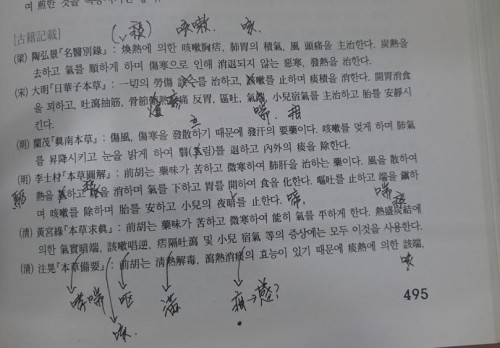 여한 것을
[古籍記載]
咳嗽 咳
(梁) 陶弘景『名醫別錄』: 煥熱에 의한 咳嗽胸痞, 肺胃의 積氣, 風 頭痛을 主治한다. 炭熱을
去하고 氣를 順하게 하며 傷寒으로 인해 消退되지 않는 惡寒, 發熱을 治한다.
(宋) 大明『日華子本草』: 一切의 勞傷 를 治하고, 嗽를 止하며 痰積을 消한다. 開胃消食
을 꾀하고, 吐瀉抽筋, 骨節 痛 反胃, 嘔吐, 氣 小兒宿氣를 主治하고 胎를 安靜시
킨다.
(明) 蘭茂『滇南本草』: 傷風, 傷寒을 發散하기 때문에 發汗의 要藥이다. 咳嗽를 멎게 하며 肺氣
를 昇降시키고 눈을 밝게 하여 翳( 림)를 退하고 內外의 痰을 除한다.
(明) 李士材『本草圖解』: 前胡는 藥味가 苦하고 微寒하여 肺肝을 治하는 藥이다. 風을 散하여
熱을 하고 을 消하며 氣를 下하고 胃를 開하여 食을 化한다. 嘔吐를 止하고 端을 鎭하
며 咳嗽를 除하며 胎를 安하고 小兒의 夜暗를 止한다.
(清) 黃宮綉『本草求眞』: 前胡는 藥味가 苦하고 微寒하여 能히 氣를 下하게 한다. 熱盛痰結에
의한 氣實暗端, 該嗽唱逆, 痞隔吐瀉 및 小兒 宿氣 等의 증상에는 모두 이것을 사용한다.
(清) 注昻『本草備要』: 前胡는 清熱解毒, 瀉熱消 의 효능이 있기 때문에 痰熱에 의한 該端,
喘 嘔 滿
咳
495